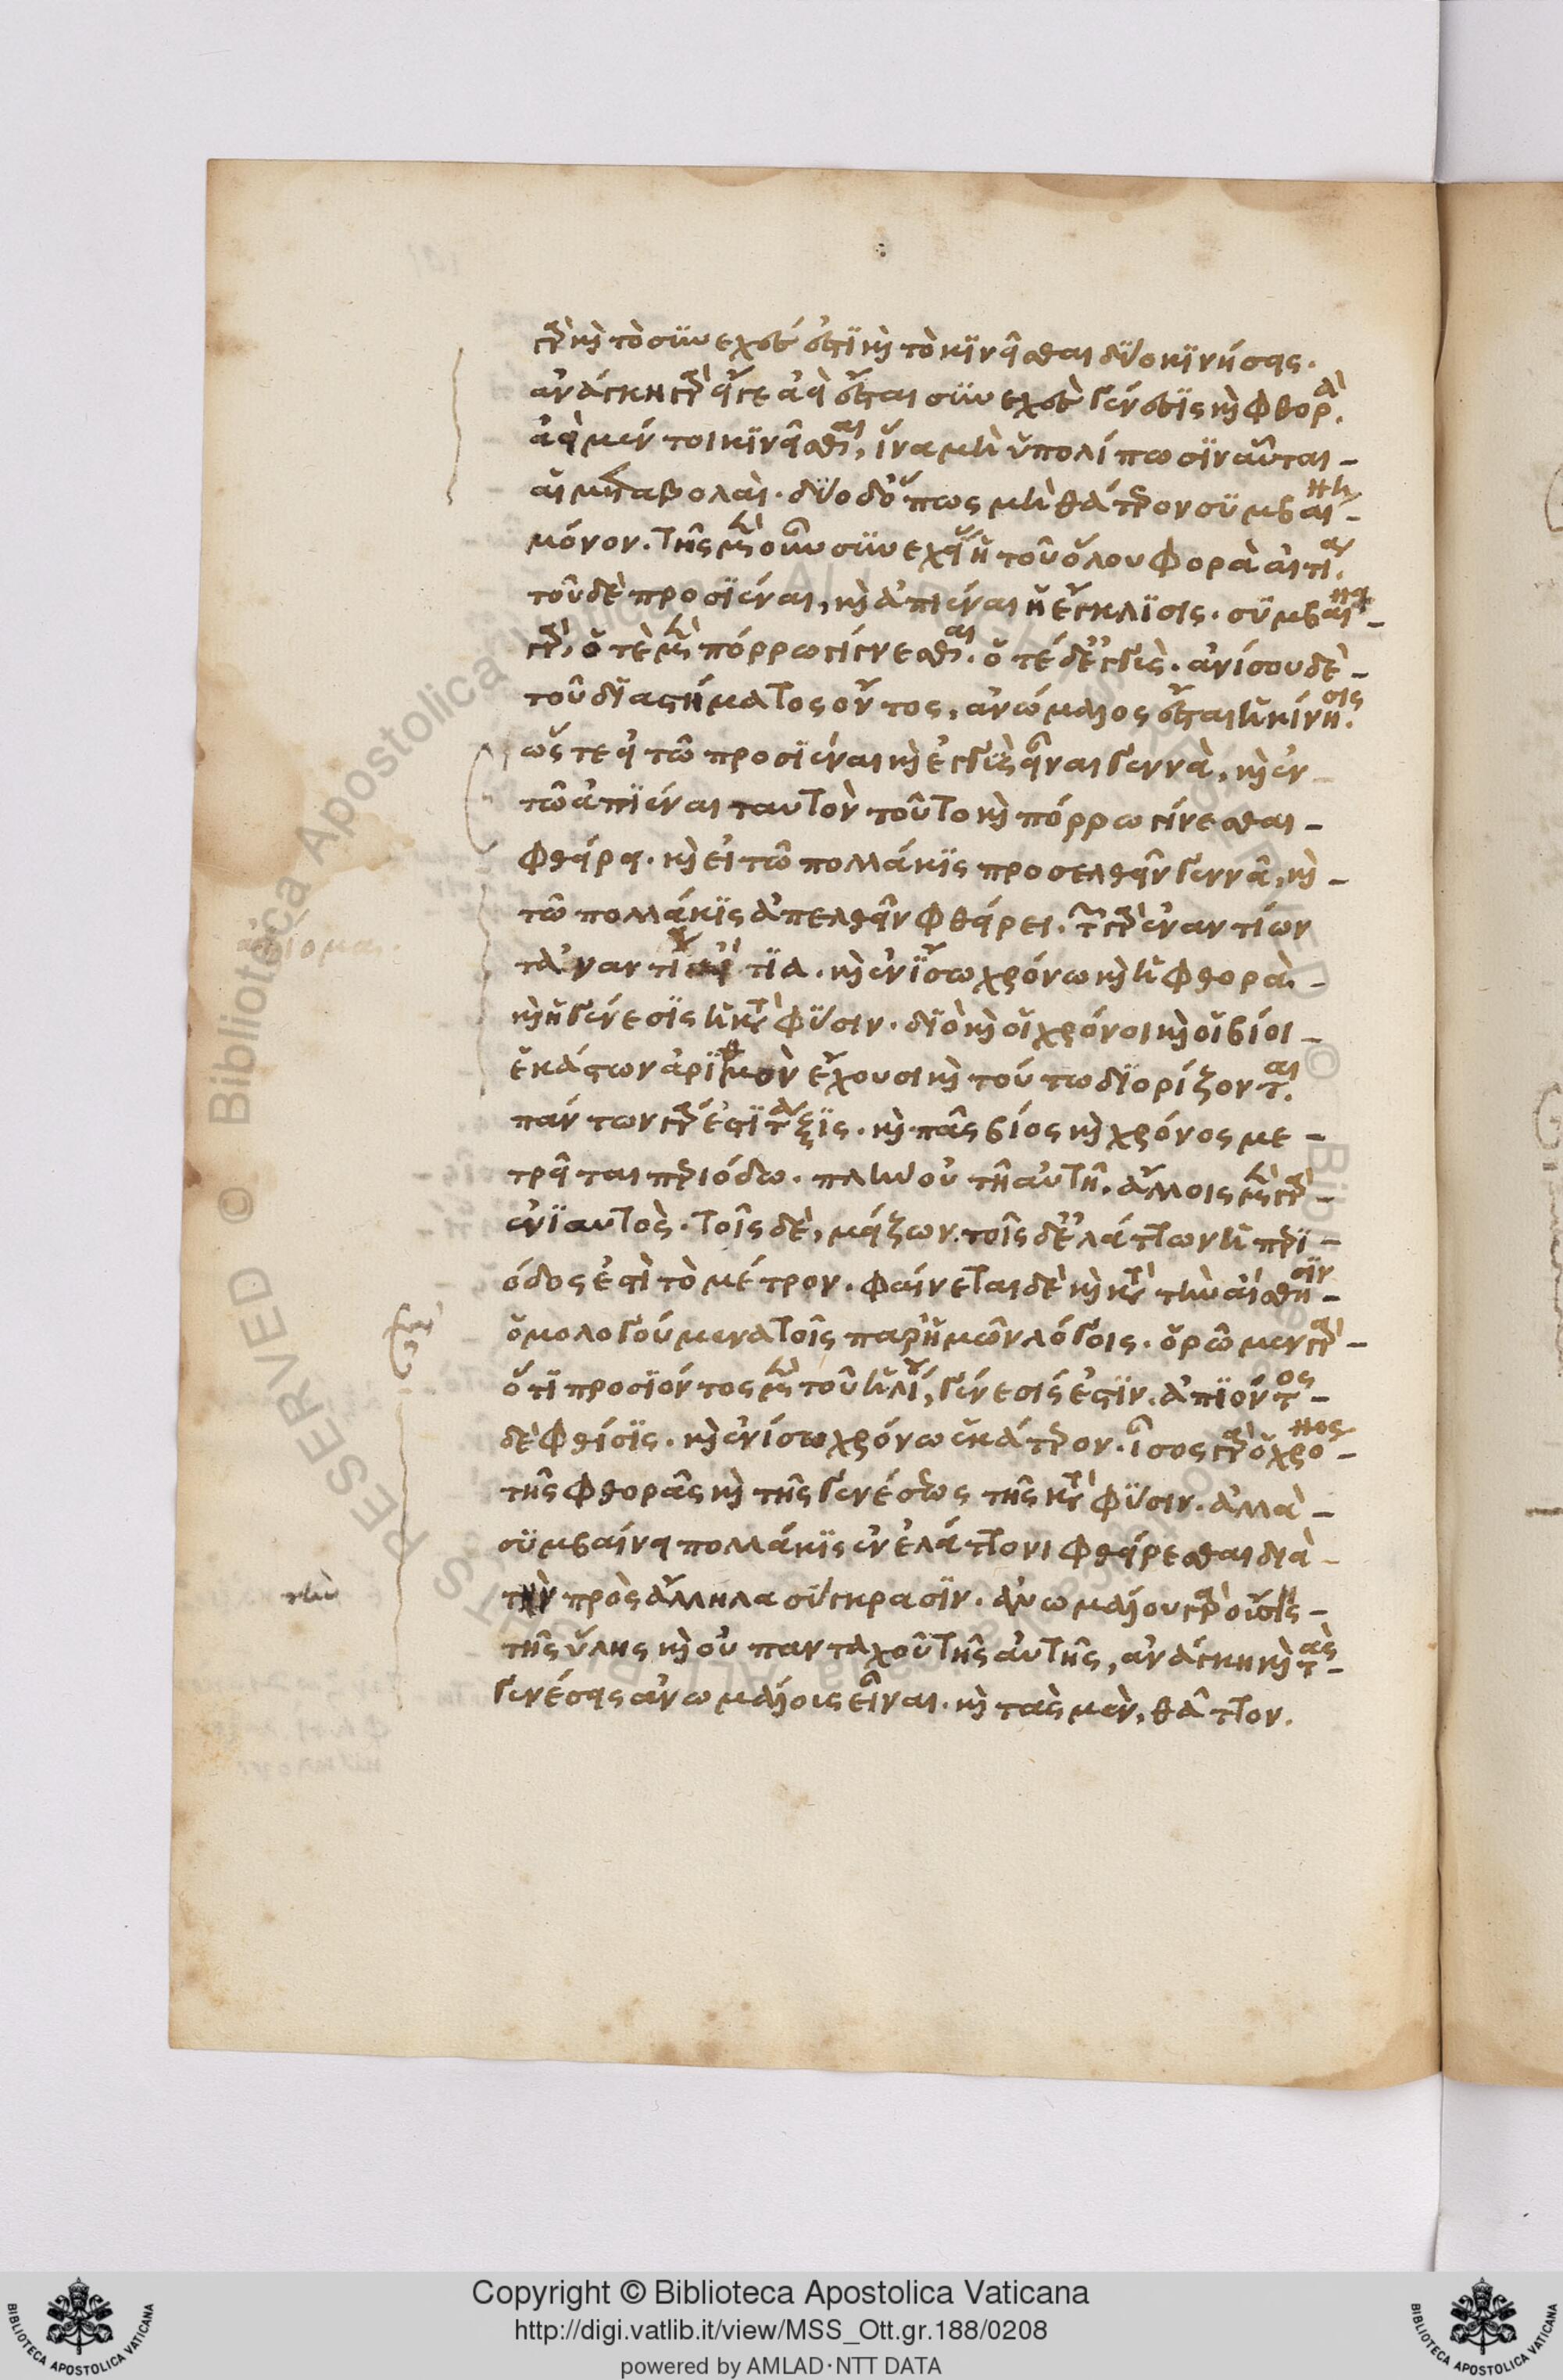 γὰρ καὶ τὸ συνεχές ἐστϊ καὶ τὸ κϊνεῖσθαι δύο κϊνήσεις.
ἀνάγκη γὰρ εἴγε ἀεὶ ἔσται συνεχὲς γένεσϊς καὶ φθορὰ.
ἀεὶ μέν τοι κϊνεῖσθαι, ἵνα μὴ ὑπολίπωσϊν αὗται –
αἱ μεταβολαὶ. δύο δ' ὅπως μὴ θάτερον συμβαίνη –
μόνον. τῆς μὲν οὖν συνεχείας ἡ τοῦ ὅλου φορὰ αἰτία.
τοῦ δὲ προσϊέναι, καὶ ἀπιέναι ἡ ἔγκλϊσις. συμβαίνει –
γὰρ, ὁτὲ μὲν πόρρω γίγνεσθαι. ὁτέ δ' ἐγγὺς. ἀνίσου δὲ –
τοῦ δϊαστήματος ὄντος, ἀνώμαλος ἔσται ἡ κίνησις.
ὥστε εἰ τῶ προσϊέναι καὶ ἐγγὺς εἶναι γεννὰ, καὶ ἐν
τῶ ἀπϊέναι ταυτὸν τοῦτο καὶ πόρρω γίνεσθαι –
φθείρει. καὶ εἰ τῶ πολλάκϊς προσελθεῖν γεννᾶ, καὶ –
τῶ πολλάκϊς ἀπελθεῖν φθείρει. τῶν γὰρ ἐναντίων
τἀναντία αἴτϊα. καὶ ἐν ἴσω χρόνω καὶ ἡ φθορὰ. –
καὶ ἡ γένεσϊς ἡ κατὰ φύσιν. δϊὸ καὶ οἱ χρόνοι καὶ οἱ βίοι –
ἑκάστων ἀρϊθμὸν ἔχουσι καὶ τούτω δϊορίζονται.
πάντων γάρ ἐστϊ τάξϊς. καὶ πᾶς βίος καὶ χρόνος με –
τρεῖται περιόδω. πλὴν οὐ τῆ αὐτῆ. ἄλλοις μὲν γὰρ –
ἐνϊαυτὸς. τοῖς δὲ, μείζων. τοῖς δ' ἐλάττων ἡ περϊ –
όδος ἐστὶ τὸ μέτρον. φαίνεται δὲ καὶ κατὰ τὴν αἴσθησϊν –
ὁμολογούμενα τοῖς παρ' ἡμῶν λόγοις. ὁρῶμεν γὰρ –
ὅτϊ προσϊόντος μὲν τοῦ ἡλίου, γένεσίς ἐστϊν. ἀπϊόντος –
δὲ φθίσϊς. καὶ ἐν ἴσω χρόνω ἑκάτερον. ἶσος γὰρ ὁ χρόνος –
τῆς φθορᾶς καὶ τῆς γενέσεως τῆς κατὰ φύσιν. ἀλλὰ –
συμβαίνει πολλάκϊς ἐν ἐλάττονι φθείρεσθαι διὰ –
τὴν πρὸς ἄλληλα σύγκρασϊν. ἀνωμάλου γὰρ οὔσης –
τῆς ὕλης καὶ οὐ πανταχοῦ τῆς αὐτῆς, ἀνάγκη καὶ τὰς –
γενέσεις ἀνωμάλοις εἶναι. καὶ τὰς μὲν, θᾶττον.
τὴν
Copyright © Biblioteca Apostolica Vaticana
http://digi.vatlib.it/view/MSS_Ott.gr.188/0208
powered by AMLAD·NTT DATA
BIBLIOTECA APOSTOLICA VATICANA
BIBLIOTECA APOSTOLICA VATICANA